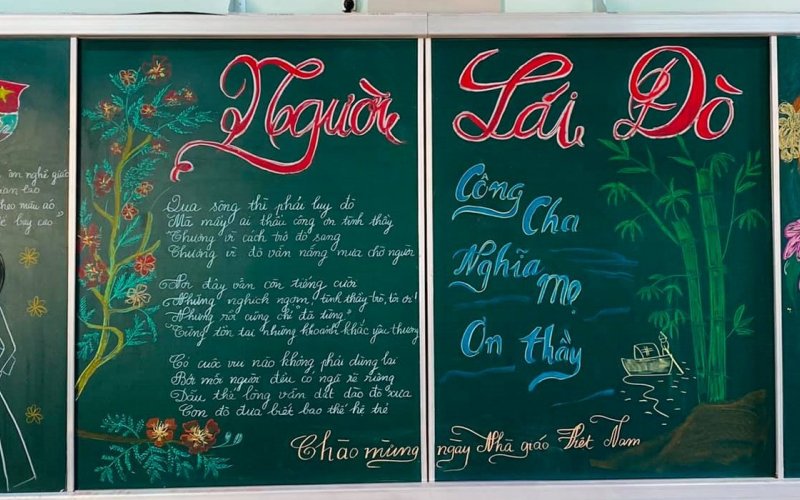 nghề giáo
lao
bay cao
Người Lái Đò
Qua sông thì phải luỵ đò
Mà mấy ai thấu công ơn tình thầy
Thương vì cách trở đò sang
Thương vì đò vẫn nắng mưa chờ người
Nơi đây vẫn còn tiếng cười
Những nghịch ngợm, tình thầy trò,
Nhưng rồi cũng chỉ "đã từng"
"Từng tồn tại những khoảnh khắc yêu thương
Có cuộc vui nào không phải dừng lại
Bởi mỗi người đều có ngã rẽ riêng
Dẫu thế lòng vẫn dắt đò xưa
Con đò đưa biết bao thế hệ trẻ
Công Cha
Nghĩa Mẹ
Ơn thầy
Chào mừng ngày Nhà giáo Việt Nam